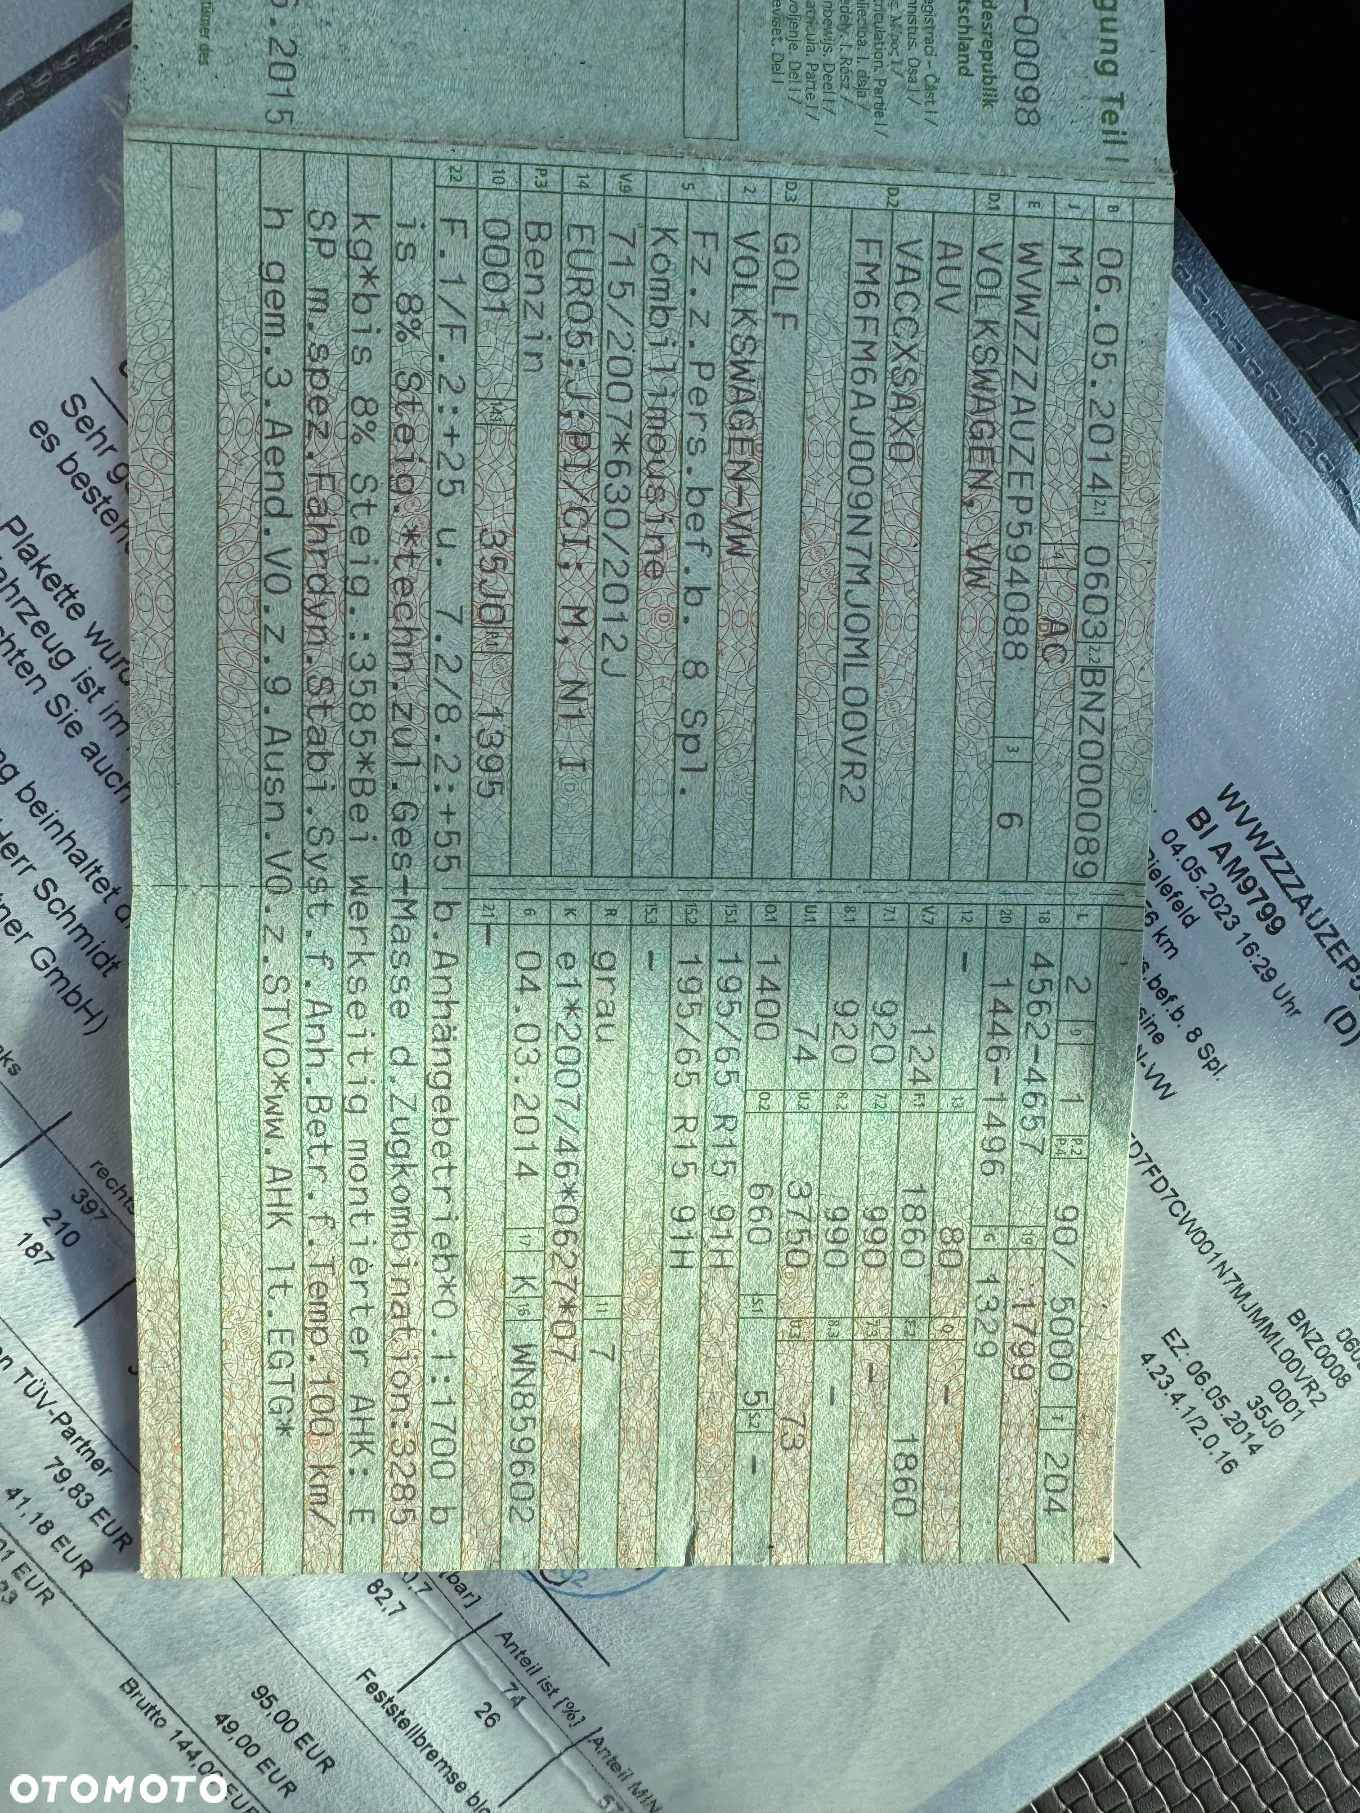 gung Teil I
-00098
desrepublik
tschland
.2015
B 06.05.2014 2.1 0603 2.2 BNZ000089
J M1 4 AC
E WVWZZZAUZEP594088 3 6
D.1 VOLKSWAGEN, VW
AUV
D.2 VACCXSAX0
FM6FM6AJ009N7MJ0ML00VR2
D.3 GOLF
2 VOLKSWAGEN-VW
5 Fz.z.Pers.bef.b. 8 Spl.
Kombilimousine
V.9 715/2007*630/2012J
14 EURO5;J;PI/CI; M, N1 I
P.3 Benzin
10 0001 14.1 35J0 P.1 1395
L 2 9 1 P.2 P.4 90/ 5000 T 204
18 4562-4657 19 1799
20 1446-1496 G 1329
12 - 13 80 Q -
V.7 124 F.1 1860 F.2 1860
7.1 920 7.2 990 7.3 -
8.1 920 8.2 990 8.3 -
U.1 74 U.2 3750 U.3 73
O.1 1400 O.2 660 S.1 5 S.2 -
15.1 195/65 R15 91H
15.2 195/65 R15 91H
15.3 -
R grau 11 7
K e1*2007/46*0627*07
6 04.03.2014 17 K 16 WN859602
21 -
22 F.1/F.2:+25 u. 7.2/8.2:+55 b.Anhängebetrieb*0.1:1700 b
is 8% Steig.*techn.zul.Ges-Masse d.Zugkombination:3285
kg*bis 8% Steig.:3585*Bei werkseitig montierter AHK: E
SP m.spez.Fahrdyn.Stabi.Syst.f.Anh.Betr.f.Temp.100 km/
h gem.3.Aend.VO.z.9.Ausn.VO.z.STVO*ww.AHK lt.EGTG*
WVWZZZAUZEP5
(D)
BI AM9799
04.05.2023 16:29 Uhr
Bielefeld
km
s.bef.b. 8 Spl.
sine
N-VW
D7FD7CW001N7MJMML00VR2
060
BNZ0008
0001
35J0
EZ: 06.05.2014
4.23.4.1/2.0.16
Sehr g
es besteht
Plakette wurd
ahrzeug ist im
chten Sie auch
ng beinhaltet d
Herr Schmidt
tner GmbH)
nks
rechts
397
210
187
on TÜV-Partner
79,83 EUR
41,18 EUR
01 EUR
[bar]
0,7
82,7
Anteil ist [%]
74
26
Anteil MIN
57
Feststellbremse
95,00 EUR
49,00 EUR
Brutto 144,00 EUR
OTOMOTO